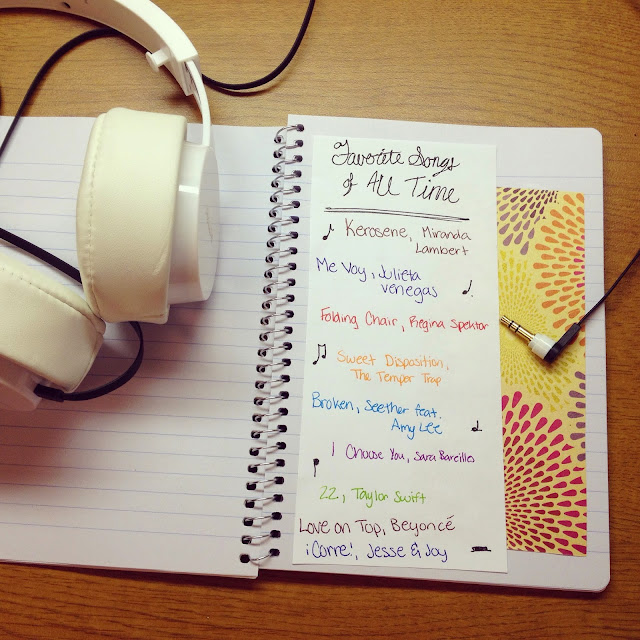 Favorite Songs
of All Time
Kerosene, Miranda
Lambert
Me Voy, Julieta
Venegas
Folding Chair, Regina Spektor
Sweet Disposition,
The Temper Trap
Broken, Seether feat.
Amy Lee
I Choose You, Sara Bareilles
22, Taylor Swift
Love on Top, Beyoncé
¡Corre!, Jesse & Joy